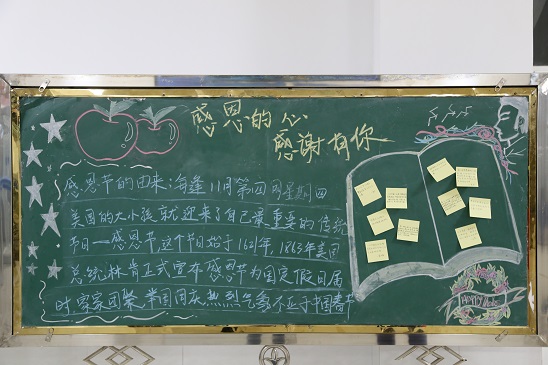 感恩的心
感谢有你
感恩节的由来：每逢11月第四个星期四
美国的大小孩就迎来了自己最重要的传统
节日—感恩节，这个节日始于1621年，1863年美国
总统林肯正式宣布感恩节为国定假日届
时，家家团聚，举国同庆，热烈气氛不亚于中国春节